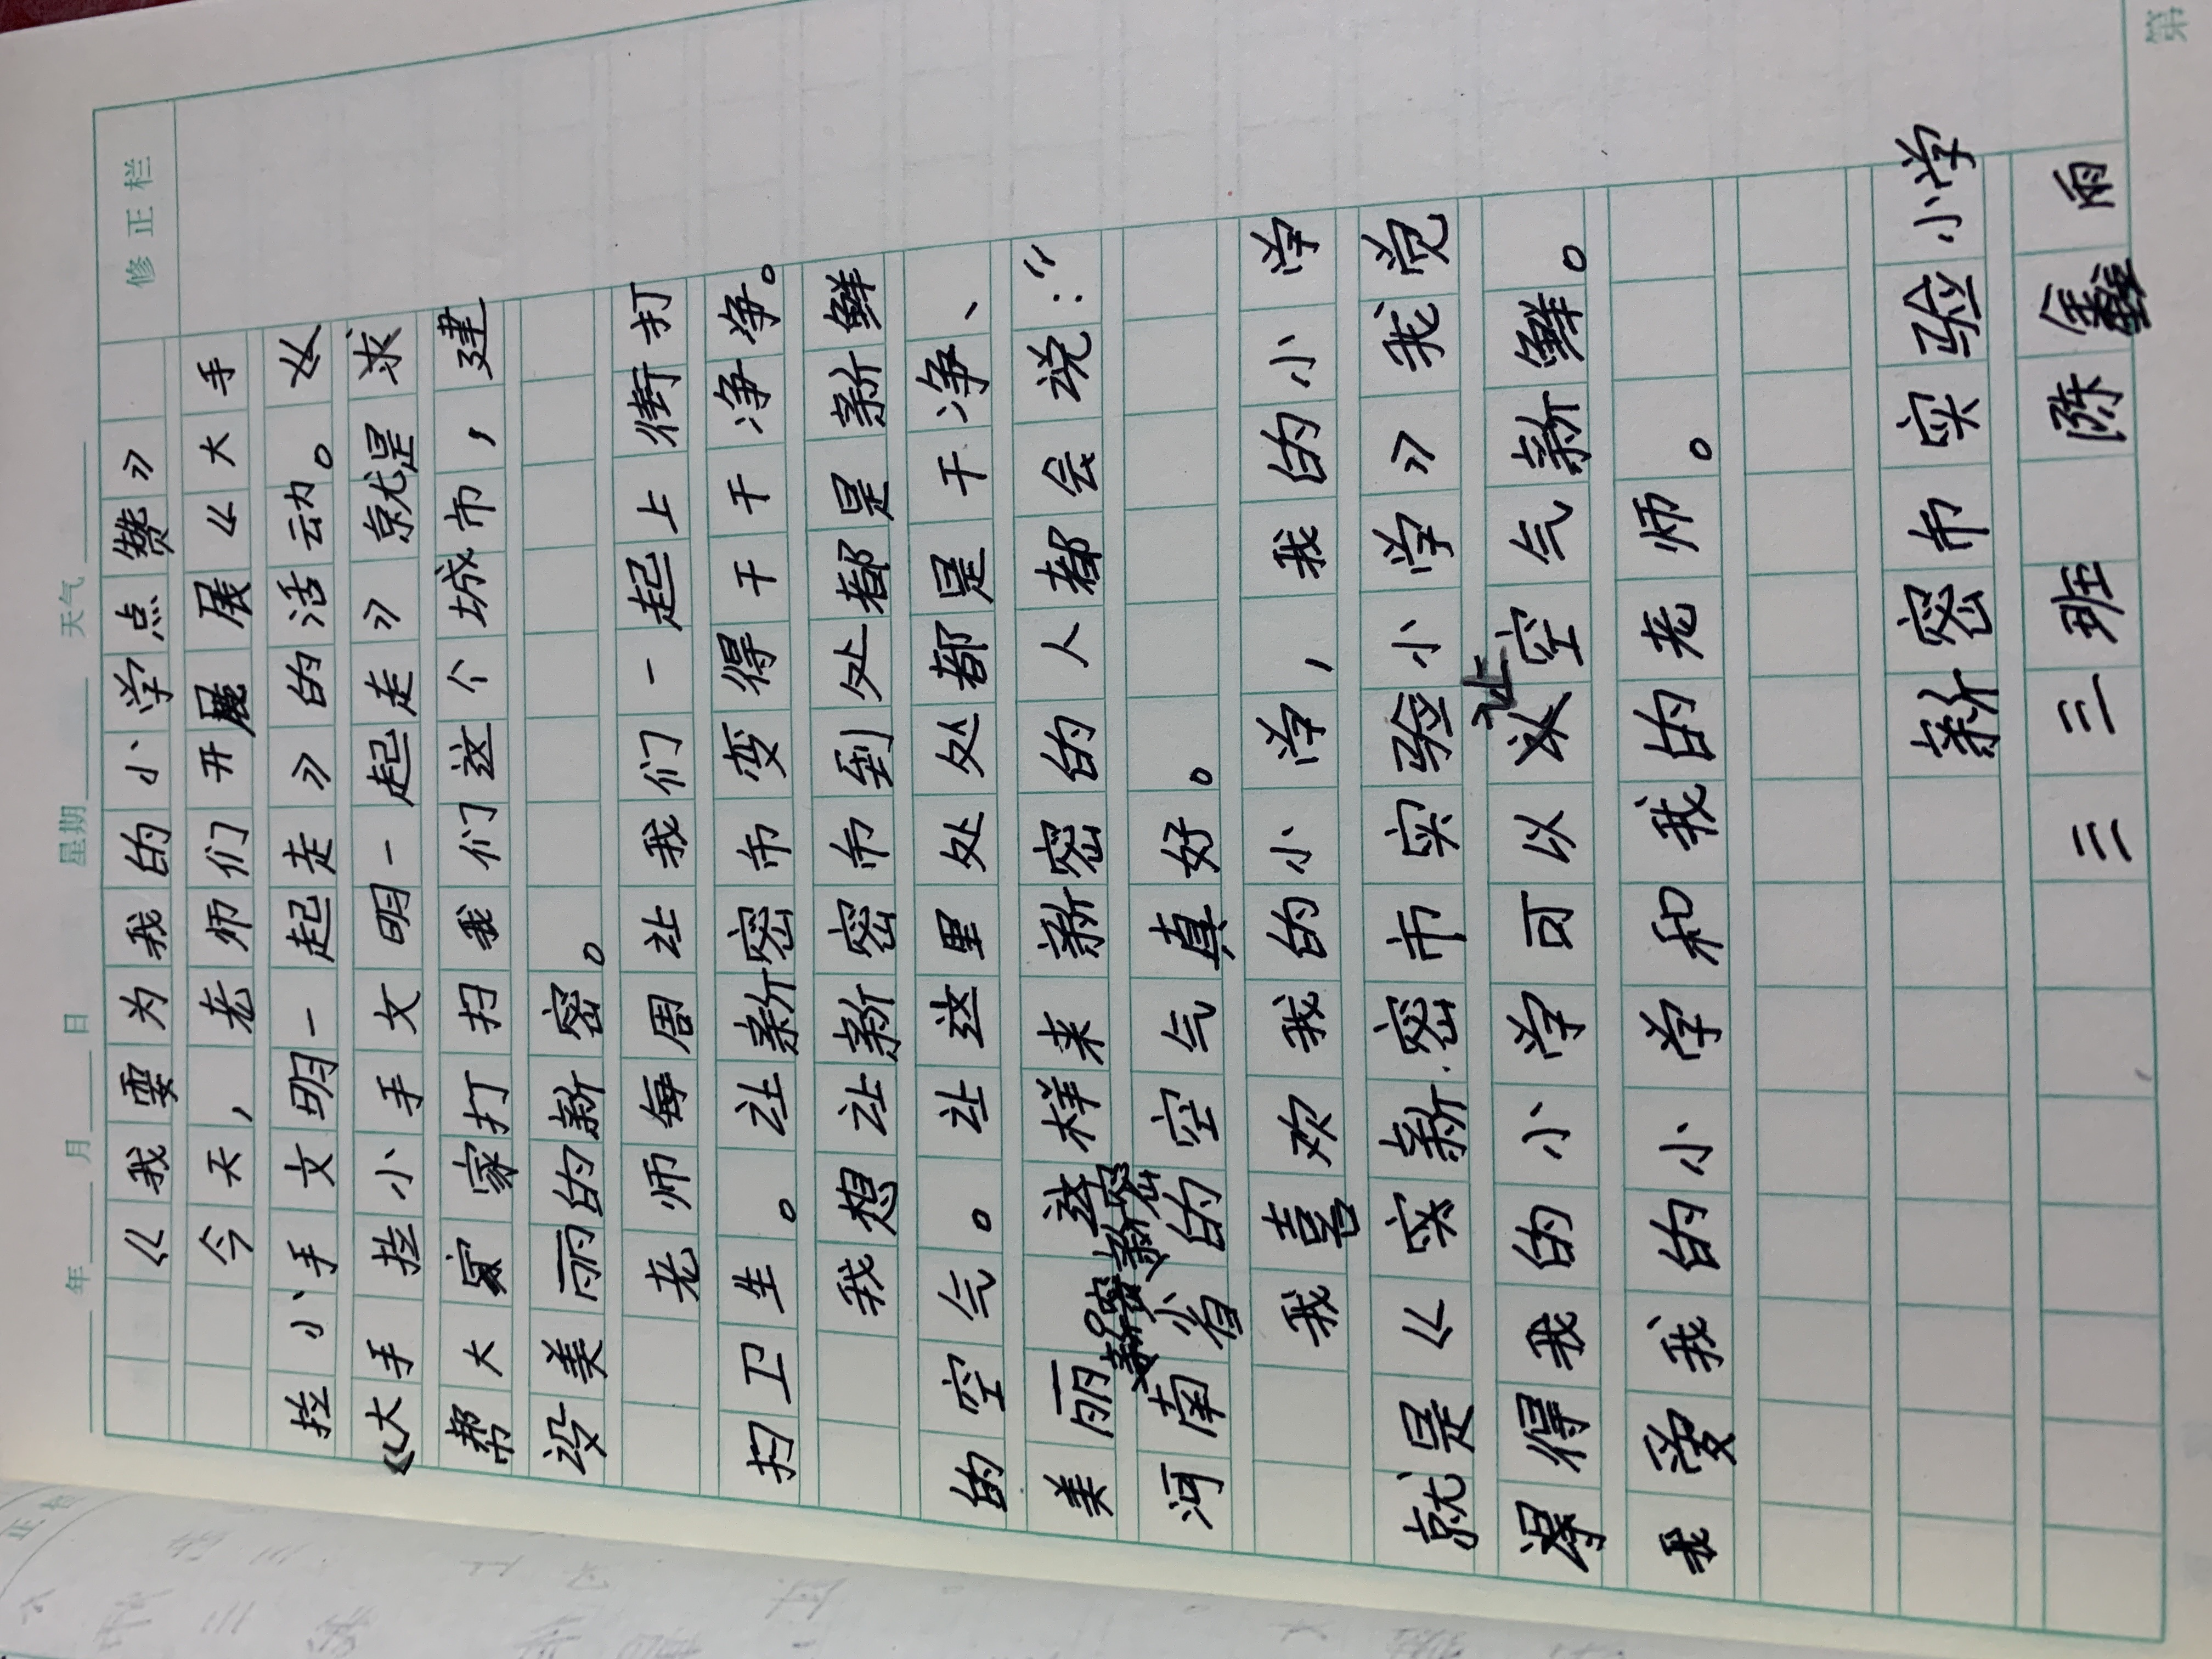 年 月 日 星期 天气
修正栏
《我要为我的小学点赞》
今天,老师们开展展《大手
拉小手文明一起走》的活动。从
《大手拉小手文明一起走》就是求
帮大家家打扫我们这个城市,建
设美丽的新密。
老师每周让我们一起上街打
扫卫生。让新密市变得干干净净。
我想让新密市到处都是新鲜
的空气。让这里处处都是干净、
美丽。这样来新密的人都会说:“
河南省新密的空气真好。
我喜欢我的小学,我的小学
就是《实新密市实验小学》我觉
得得我的小学可以让空气新鲜。
我爱我的小学和我的老师。
新密市实验小学
三三班 陈鑫雨
第